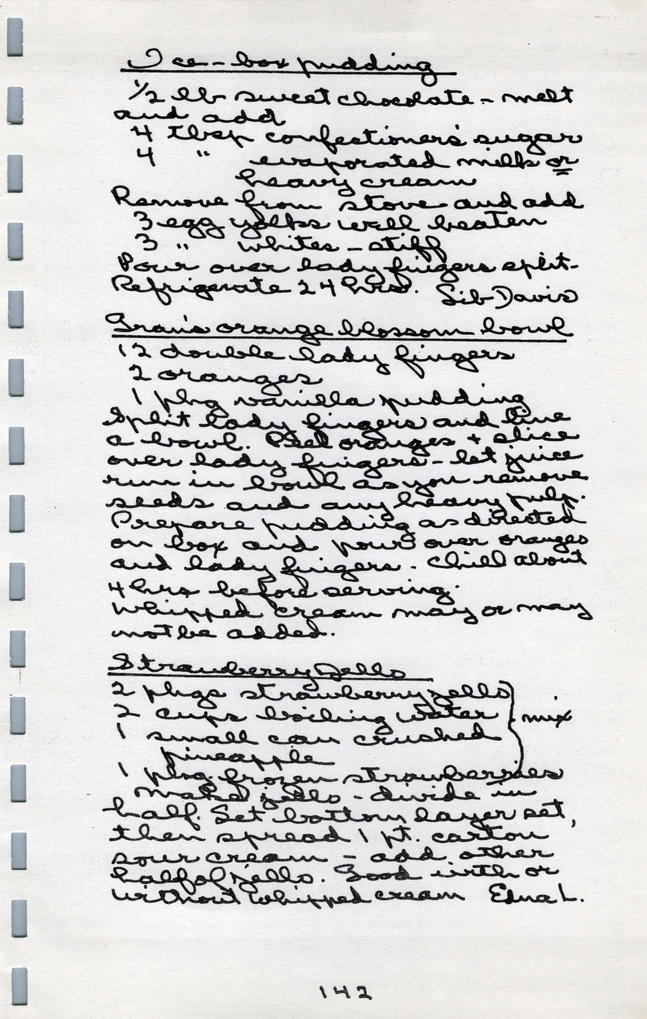 Ice-box pudding
1/2 lb sweet chocolate - melt
and add
4 tbsp confectioners' sugar
4 " evaporated milk or
heavy cream
Remove from stove and add
3 egg yolks well beaten
3 " whites - stiff
Pour over lady fingers split-
Refrigerate 24 hrs. Sib Davis
Gran's orange blossom bowl
12 double lady fingers
2 oranges
1 pkg vanilla pudding
Split lady fingers and line
a bowl. Peel oranges + slice
over lady fingers - let juice
run in bowl as you remove
seeds and any heavy pulp.
Prepare pudding as directed
on box and pour over oranges
and lady fingers. Chill about
4 hrs before serving.
Whipped cream may or may
not be added.
Strawberry Jello
2 pkgs strawberry jello
2 cups boiling water } mix
1 small can crushed
pineapple
1 pkg frozen strawberries
Make jello - divide in
half. Set bottom layer set,
then spread 1 pt. carton
sour cream - add other
half of jello. Good with or
without whipped cream Edna L.
142